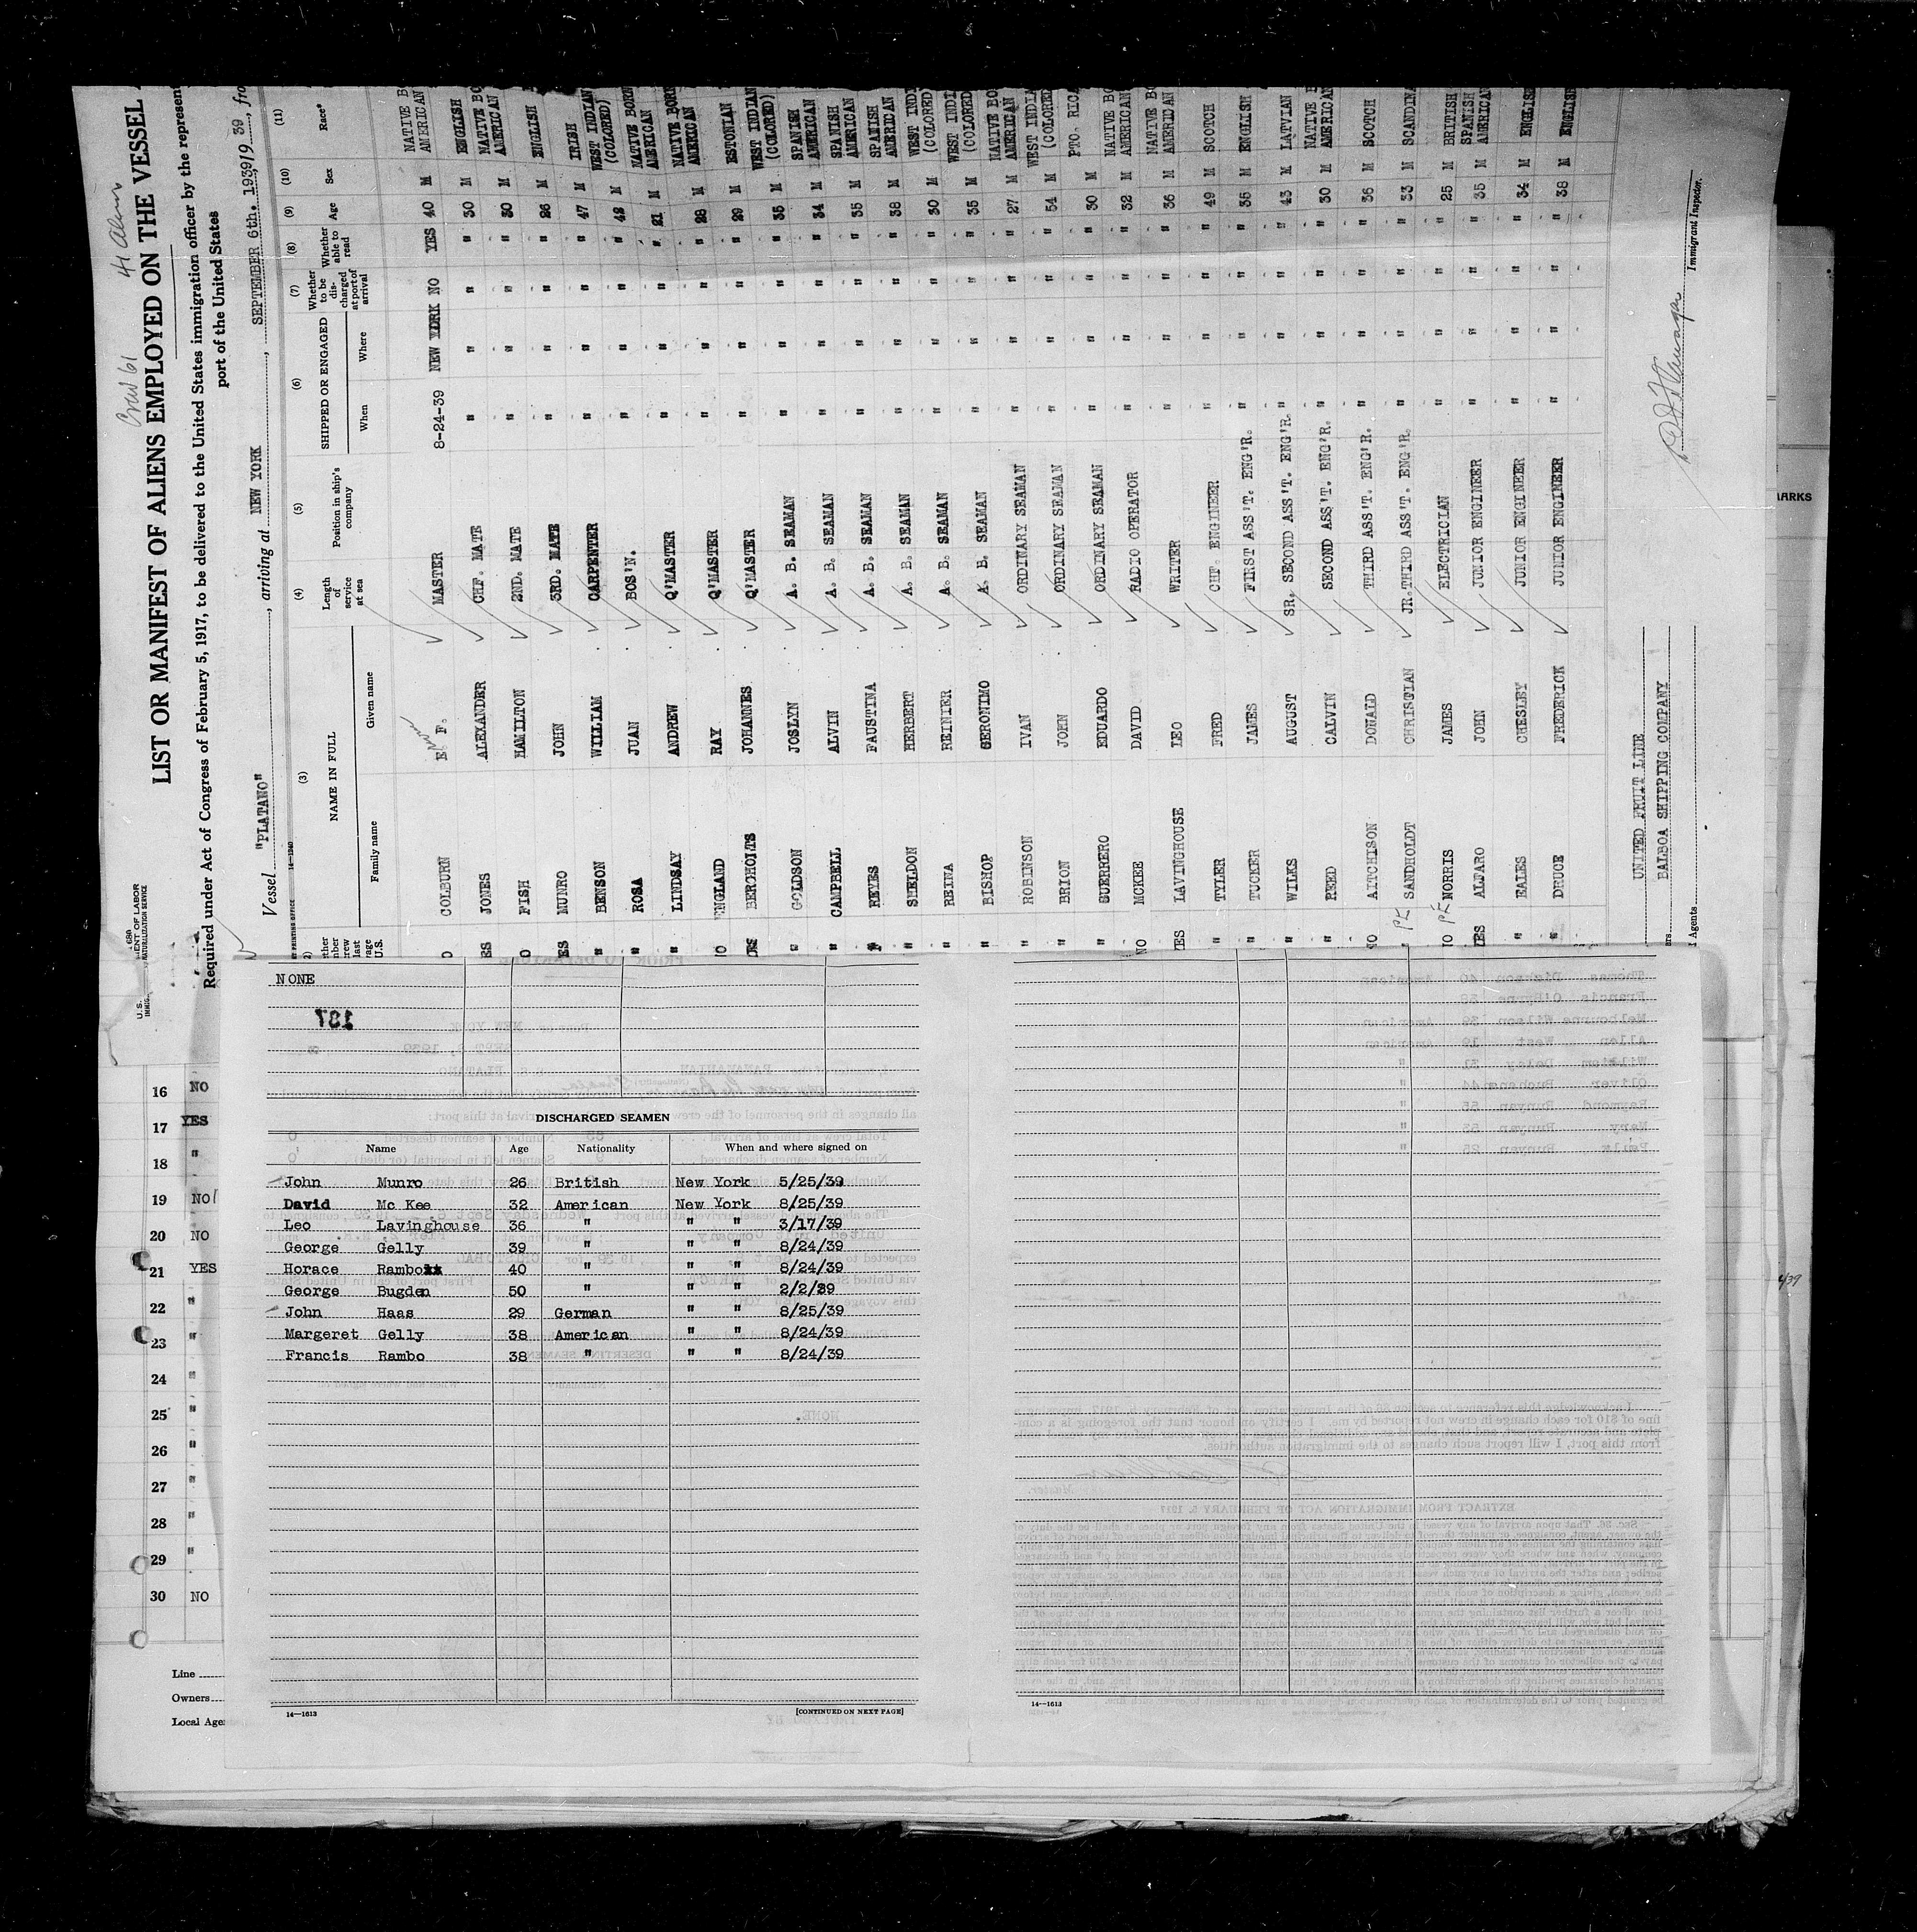 Crew 61 41 Alem
LIST OR MANIFEST OF ALIENS EMPLOYED ON THE VESSEL
Required under Act of Congress of February 5, 1917, to be delivered to the United States immigration officer by the represent
port of the United States
Vessel "PLATANO", arriving at NEW YORK, SEPTEMBER 6th. 1939 19 39, fro
(3) (4) (5) (6) (7) (8) (9) (10) (11)
NAME IN FULL Length of service at sea Position in ship's company SHIPPED OR ENGAGED Whether to be discharged at port of arrival Whether able to read Age Sex Race*
Family name Given name When Where
COLBURN E. F. MASTER 8-24-39 NEW YORK NO YES 40 M NATIVE BO AMERICAN
ES JONES ALEXANDER CHF. MATE " " " " 30 M ENGLISH
FISH HAMILTON 2ND. MATE " " " " 30 M NATIVE BO AMERICAN
ES MUNRO JOHN 3RD. MATE " " " " 26 M ENGLISH
" BENSON WILLIAM CARPENTER " " " " 47 M IRISH
" ROSA JUAN BOS'N. " " " " 42 M WEST INDIAN (COLORED)
" LINDSAY ANDREW Q'MASTER " " " " 21 M NATIVE BORN AMERICAN
ENGLAND RAY Q'MASTER " " " " 28 M NATIVE BORN AMERICAN
BERCHOLTS JOHANNES Q'MASTER " " " " 29 M ESTONIAN
" GOLDSON JOSLYN A. B. SEAMAN " " " " 35 M WEST INDIAN (COLORED)
" CAMPBELL ALVIN A. B. SEAMAN " " " " 34 M SPANISH AMERICAN
" REYES FAUSTINA A. B. SEAMAN " " " " 35 M SPANISH AMERICAN
" SHELDON HERBERT A. B. SEAMAN " " " " 38 M SPANISH AMERICAN
" REINA REINIER A. B. SEAMAN " " " " 30 M WEST INDI (COLORED
" BISHOP GERONIMO A. B. SEAMAN " " " " 35 M WEST INDI (COLORED
" ROBINSON IVAN ORDINARY SEAMAN " " " " 27 M NATIVE BO AMERICAN
" BRION JOHN ORDINARY SEAMAN " " " " 54 M WEST INDIA (COLORED
" GUERRERO EDUARDO ORDINARY SEAMAN " " " " 30 M PTO. RICA
NO MCKEE DAVID RADIO OPERATOR " " " " 32 M NATIVE BO AMERICAN
YES LAVINGHOUSE LEO WRITER " " " " 36 M NATIVE BO AMERICAN
" TYLER FRED CHF. ENGINEER " " " " 49 M SCOTCH
" TUCKER JAMES FIRST ASS'T. ENG'R. " " " " 35 M ENGLISH
" WILKS AUGUST SR. SECOND ASS'T. ENG'R. " " " " 43 M LATVIAN
" REED CALVIN SECOND ASS'T. ENG'R. " " " " 30 M NATIVE B AMERICAN
NO AITCHISON DONALD THIRD ASS'T. ENG'R. " " " " 36 M SCOTCH
" SANDHOLDT CHRISTIAN JR. THIRD ASS'T. ENG'R. " " " " 33 M SCANDINA
NO NORRIS JAMES ELECTRICIAN " " " " 25 M BRITISH
YES ALFARO JOHN JUNIOR ENGINEER " " " " 35 M SPANISH AMERICA
" EALES CHESLEY JUNIOR ENGINEER " " " " 34 M ENGLISH
" DRUCE FREDERICK JUNIOR ENGINEER " " " " 38 M ENGLISH
UNITED FRUIT LINE
BALBOA SHIPPING COMPANY
Agents
Immigrant Inspector.
ARKS
NONE
187
DISCHARGED SEAMEN
Name Age Nationality When and where signed on
John Munro 26 British New York 5/25/39
David Mc Kee 32 American New York 8/25/39
Leo Lavinghouse 36 " " " 3/17/39
George Gelly 39 " " " 8/24/39
Horace Rambo 40 " " " 8/24/39
George Bugden 50 " " " 2/2/39
John Haas 29 German " " 8/25/39
Margeret Gelly 38 American " " 8/24/39
Francis Rambo 38 " " " 8/24/39
14—1613 [CONTINUED ON NEXT PAGE]
14—1613
16 NO
17 YES
18 "
19 NO
20 NO
21 YES
22 "
23 "
24 "
25 "
26 "
27 "
28 "
29 "
30 NO
Line
Owners
Local Age